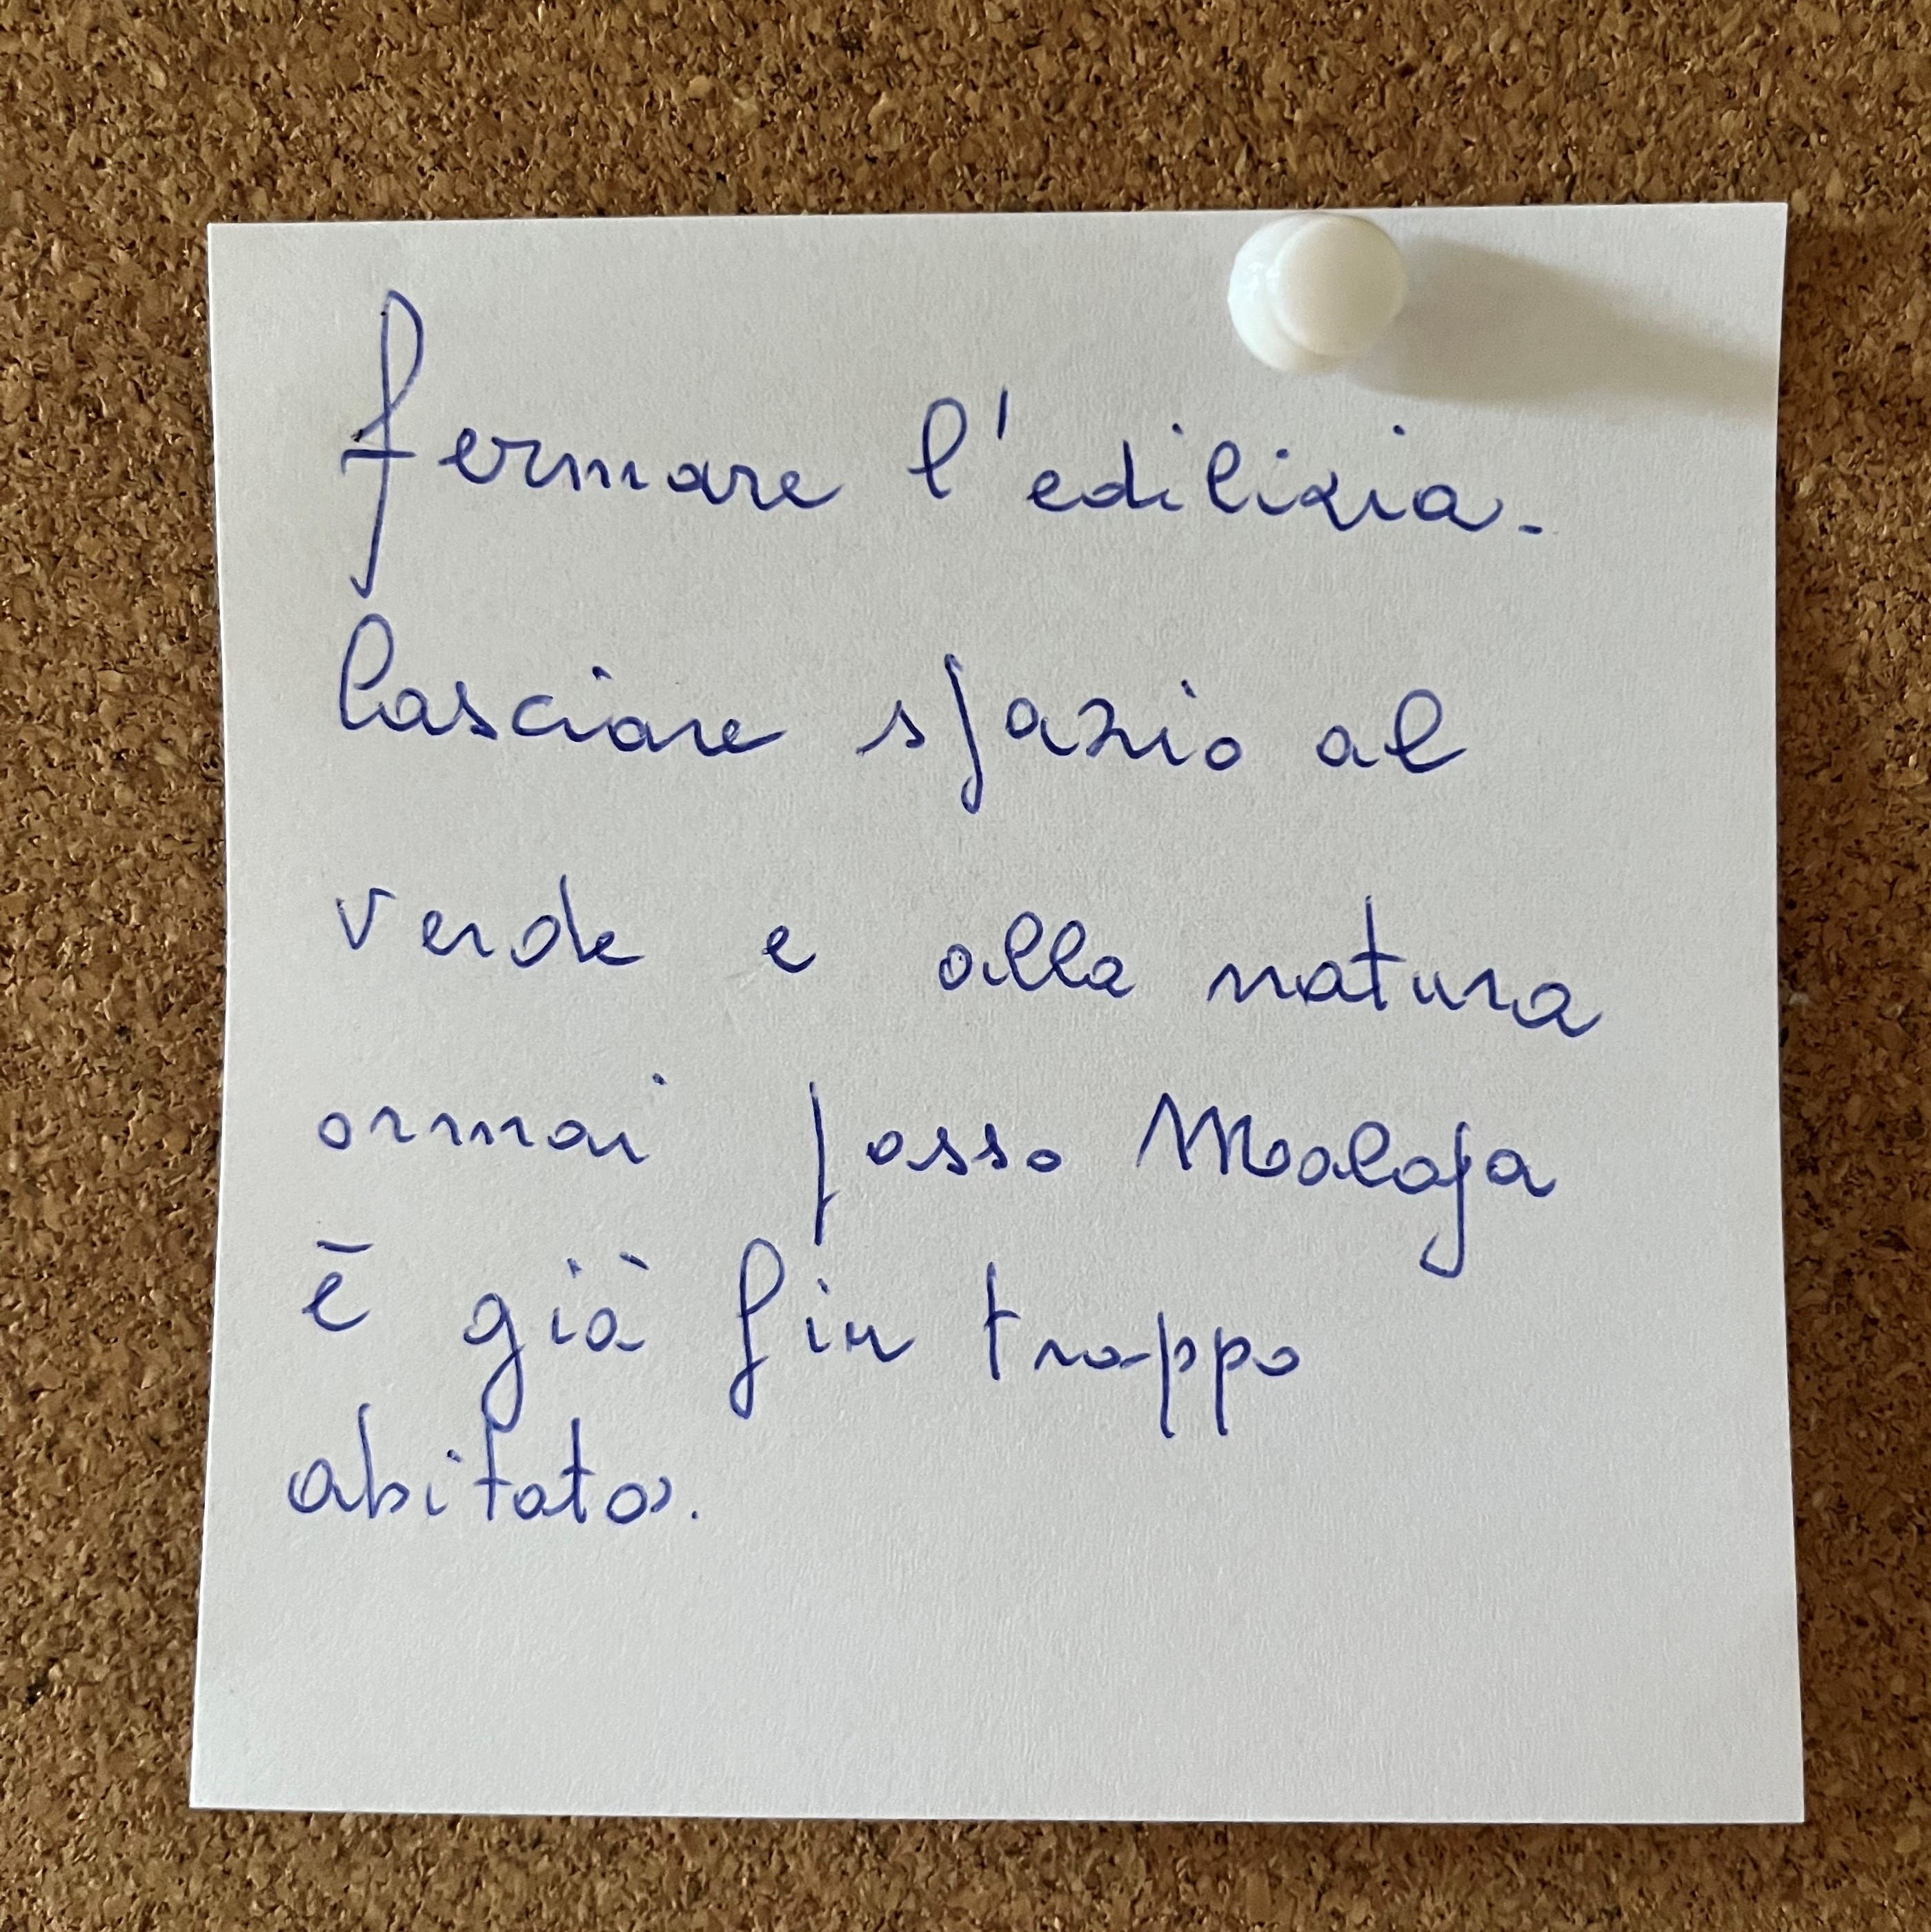 fermare l'edilizia.
lasciare spazio al
verde e alla natura
ormai passo Maloja
è già fin troppo
abitato.